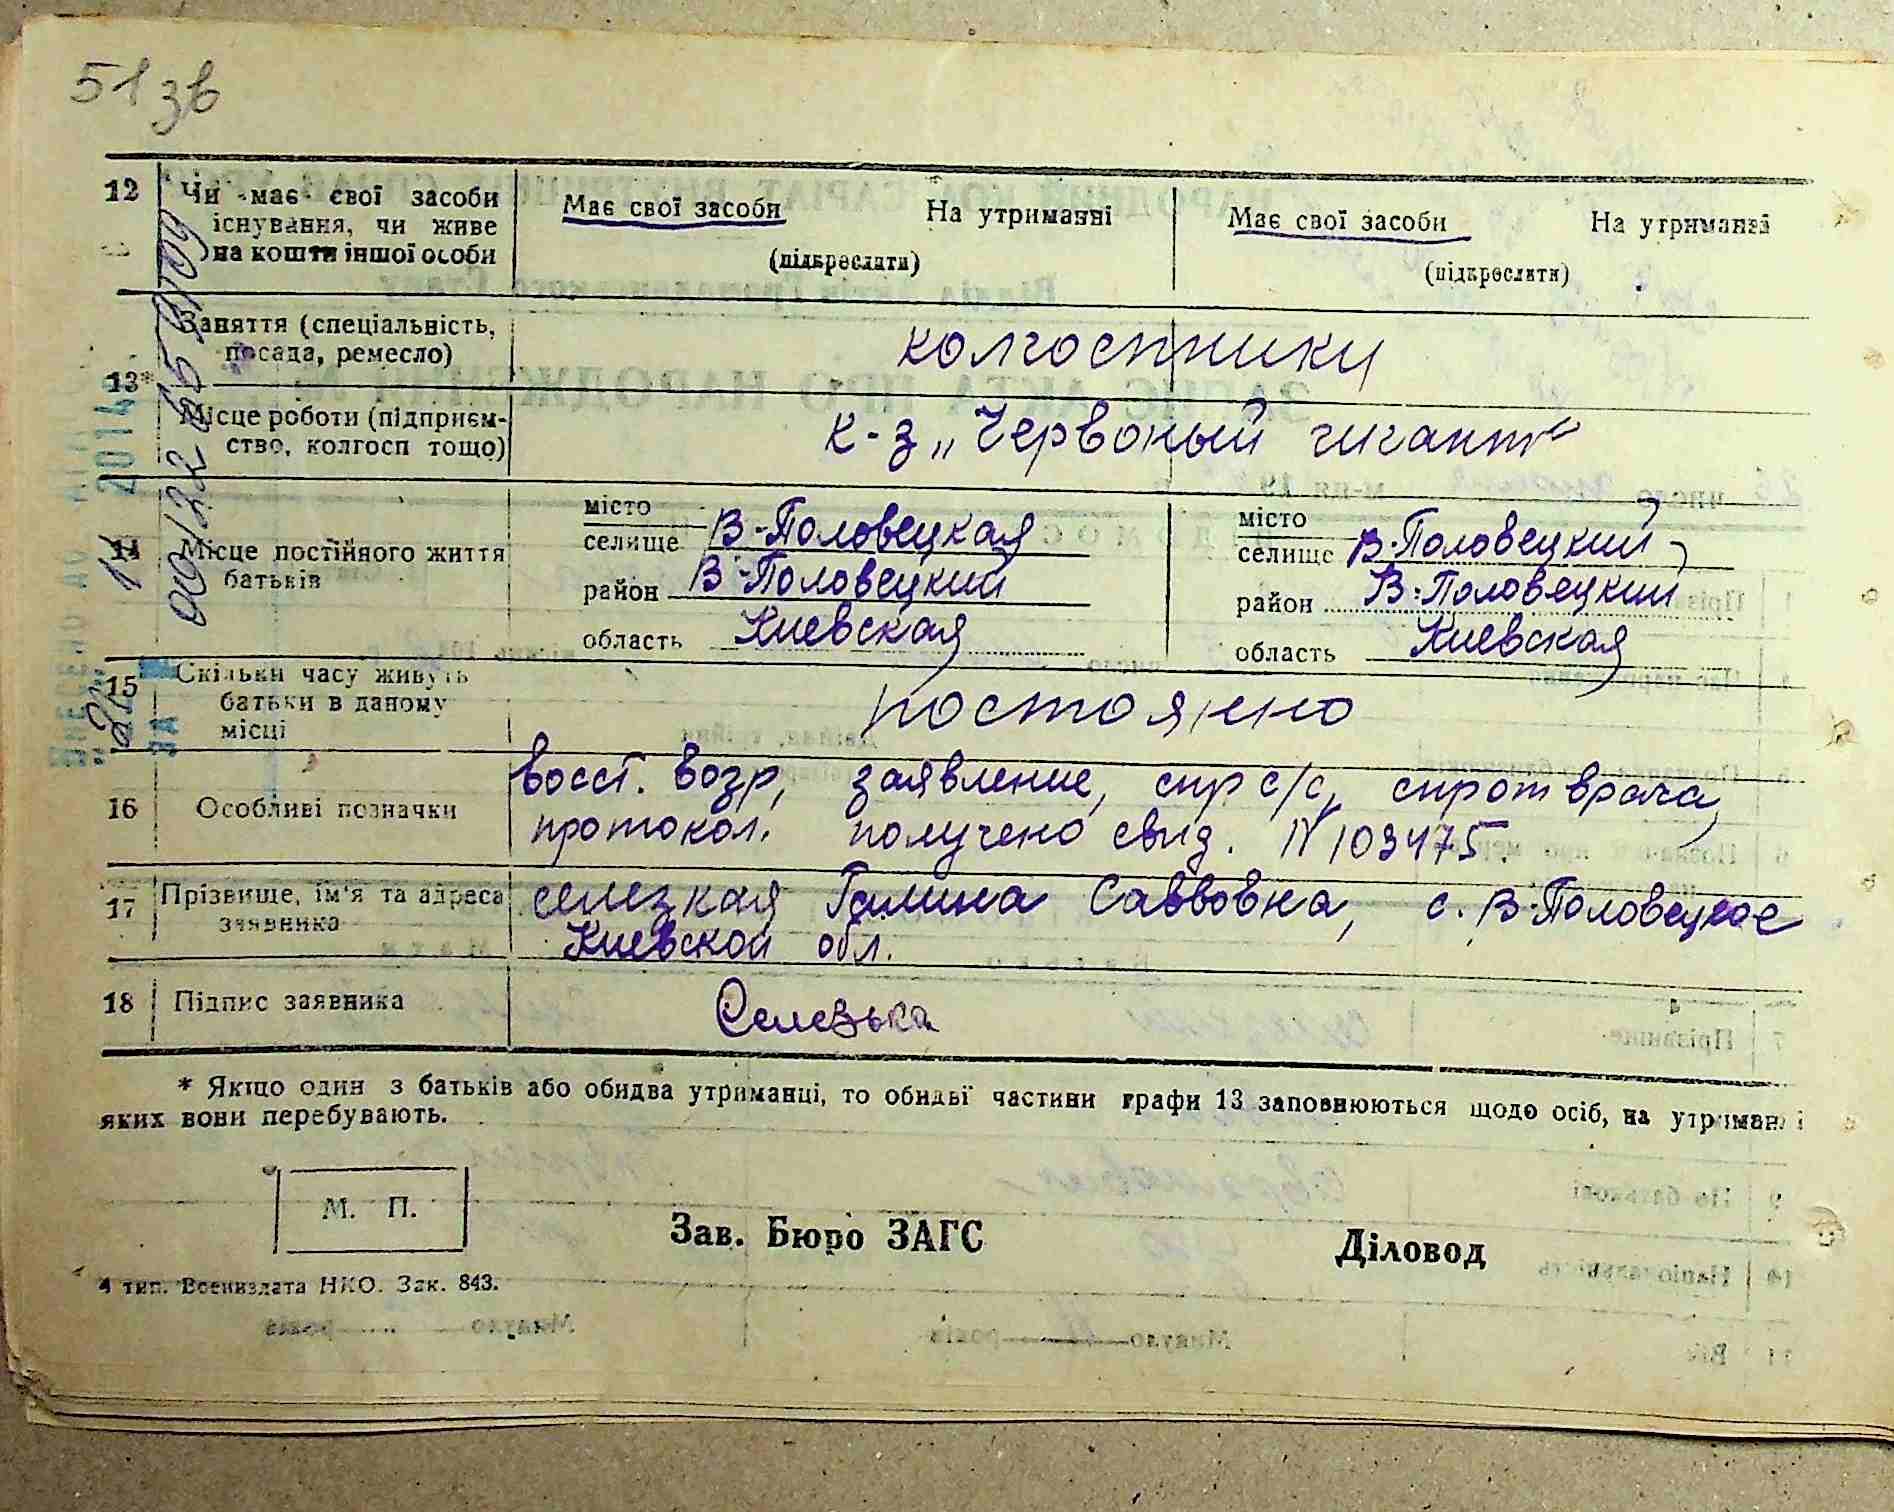 51 зв
12 Чи має свої засоби існування, чи живе на кошти іншої особи
Має свої засоби На утриманні
(підкреслити)
Має свої засоби На утриманні
(підкреслити)
13* Заняття (спеціальність, посада, ремесло)
колгоспники
Місце роботи (підприємство, колгосп тощо)
к-з „Червоный гигант"
14 Місце постійного життя батьків
місто
селище В-Половецкая
район В-Половецкий
область Киевская
місто
селище В-Половецкий
район В-Половецкий
область Киевская
15 Скільки часу живуть батьки в даному місці
постоянно
16 Особливі позначки
восст. возр, заявление, спр с/с, спр от врача
протокол. получено свид. N 103475.
17 Прізвище, ім'я та адреса заявника
селезкая Галина Саввовна, с. В-Половецкое
Киевской обл.
18 Підпис заявника
Селезька
* Якщо один з батьків або обидва утриманці, то обидві частини графи 13 заповнюються щодо осіб, на утриманні
яких вони перебувають.
М. П.
Зав. Бюро ЗАГС
Діловод
4 тип. Воениздата НКО. Зак. 843.
2014